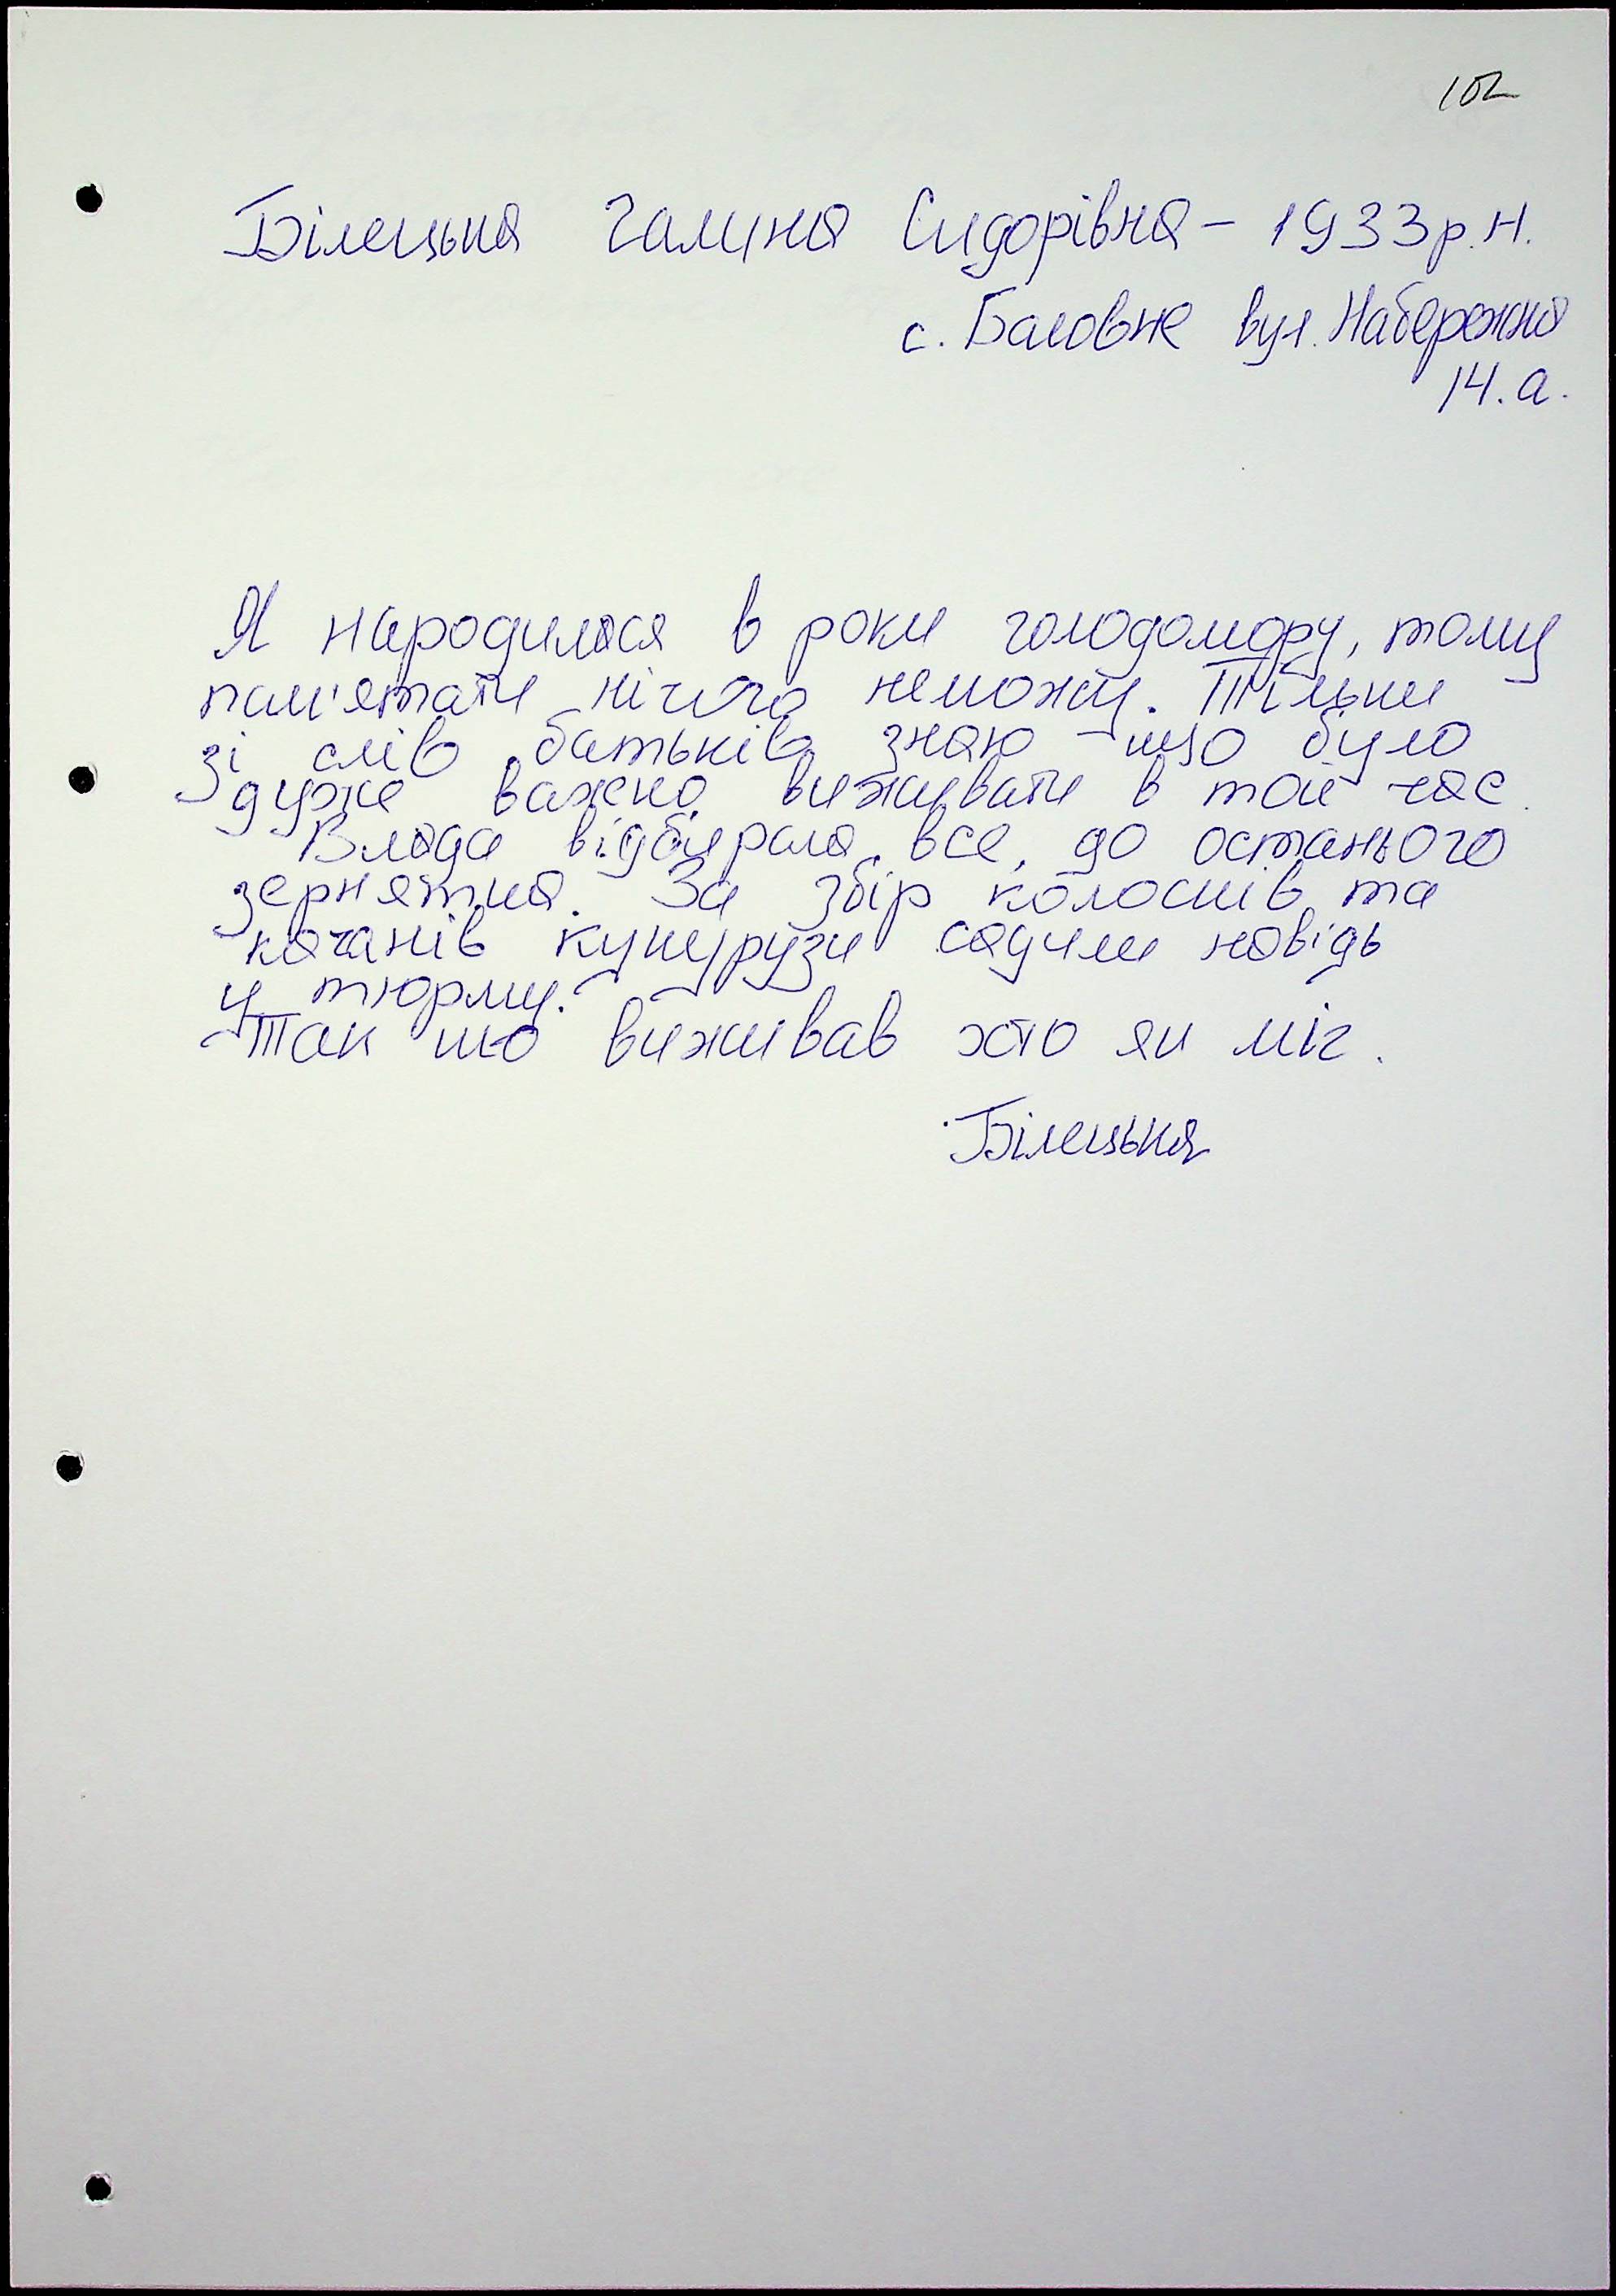 102
Білецька Галина Сидорівна - 1933 р.н.
с. Баловне вул. Набережна
14.а.
Я народилася в роки голодомору, тому
пам'ятати нічого неможу. Тільки
зі слів батьків знаю що було
дуже важко виживати в той час.
Влада відбирала все, до останього
зернятка. За збір колосків та
качанів кукурузи садили навідь
у тюрму.
Так що виживав хто як міг.
Білецька